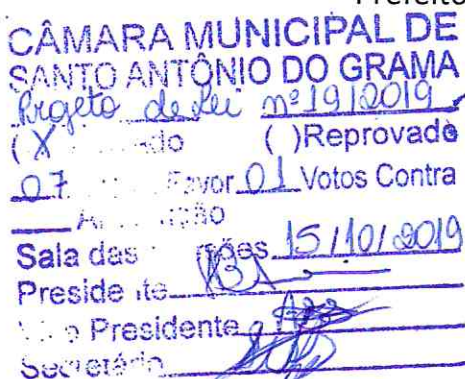 Prefeito
CÂMARA MUNICIPAL DE
SANTO ANTÔNIO DO GRAMA
Projeto de Lei nº 19/2019
(X ado ( )Reprovado
07 Favor 01 Votos Contra
Sala das sões 15/10/2019
Preside te
Presidente
Secretário